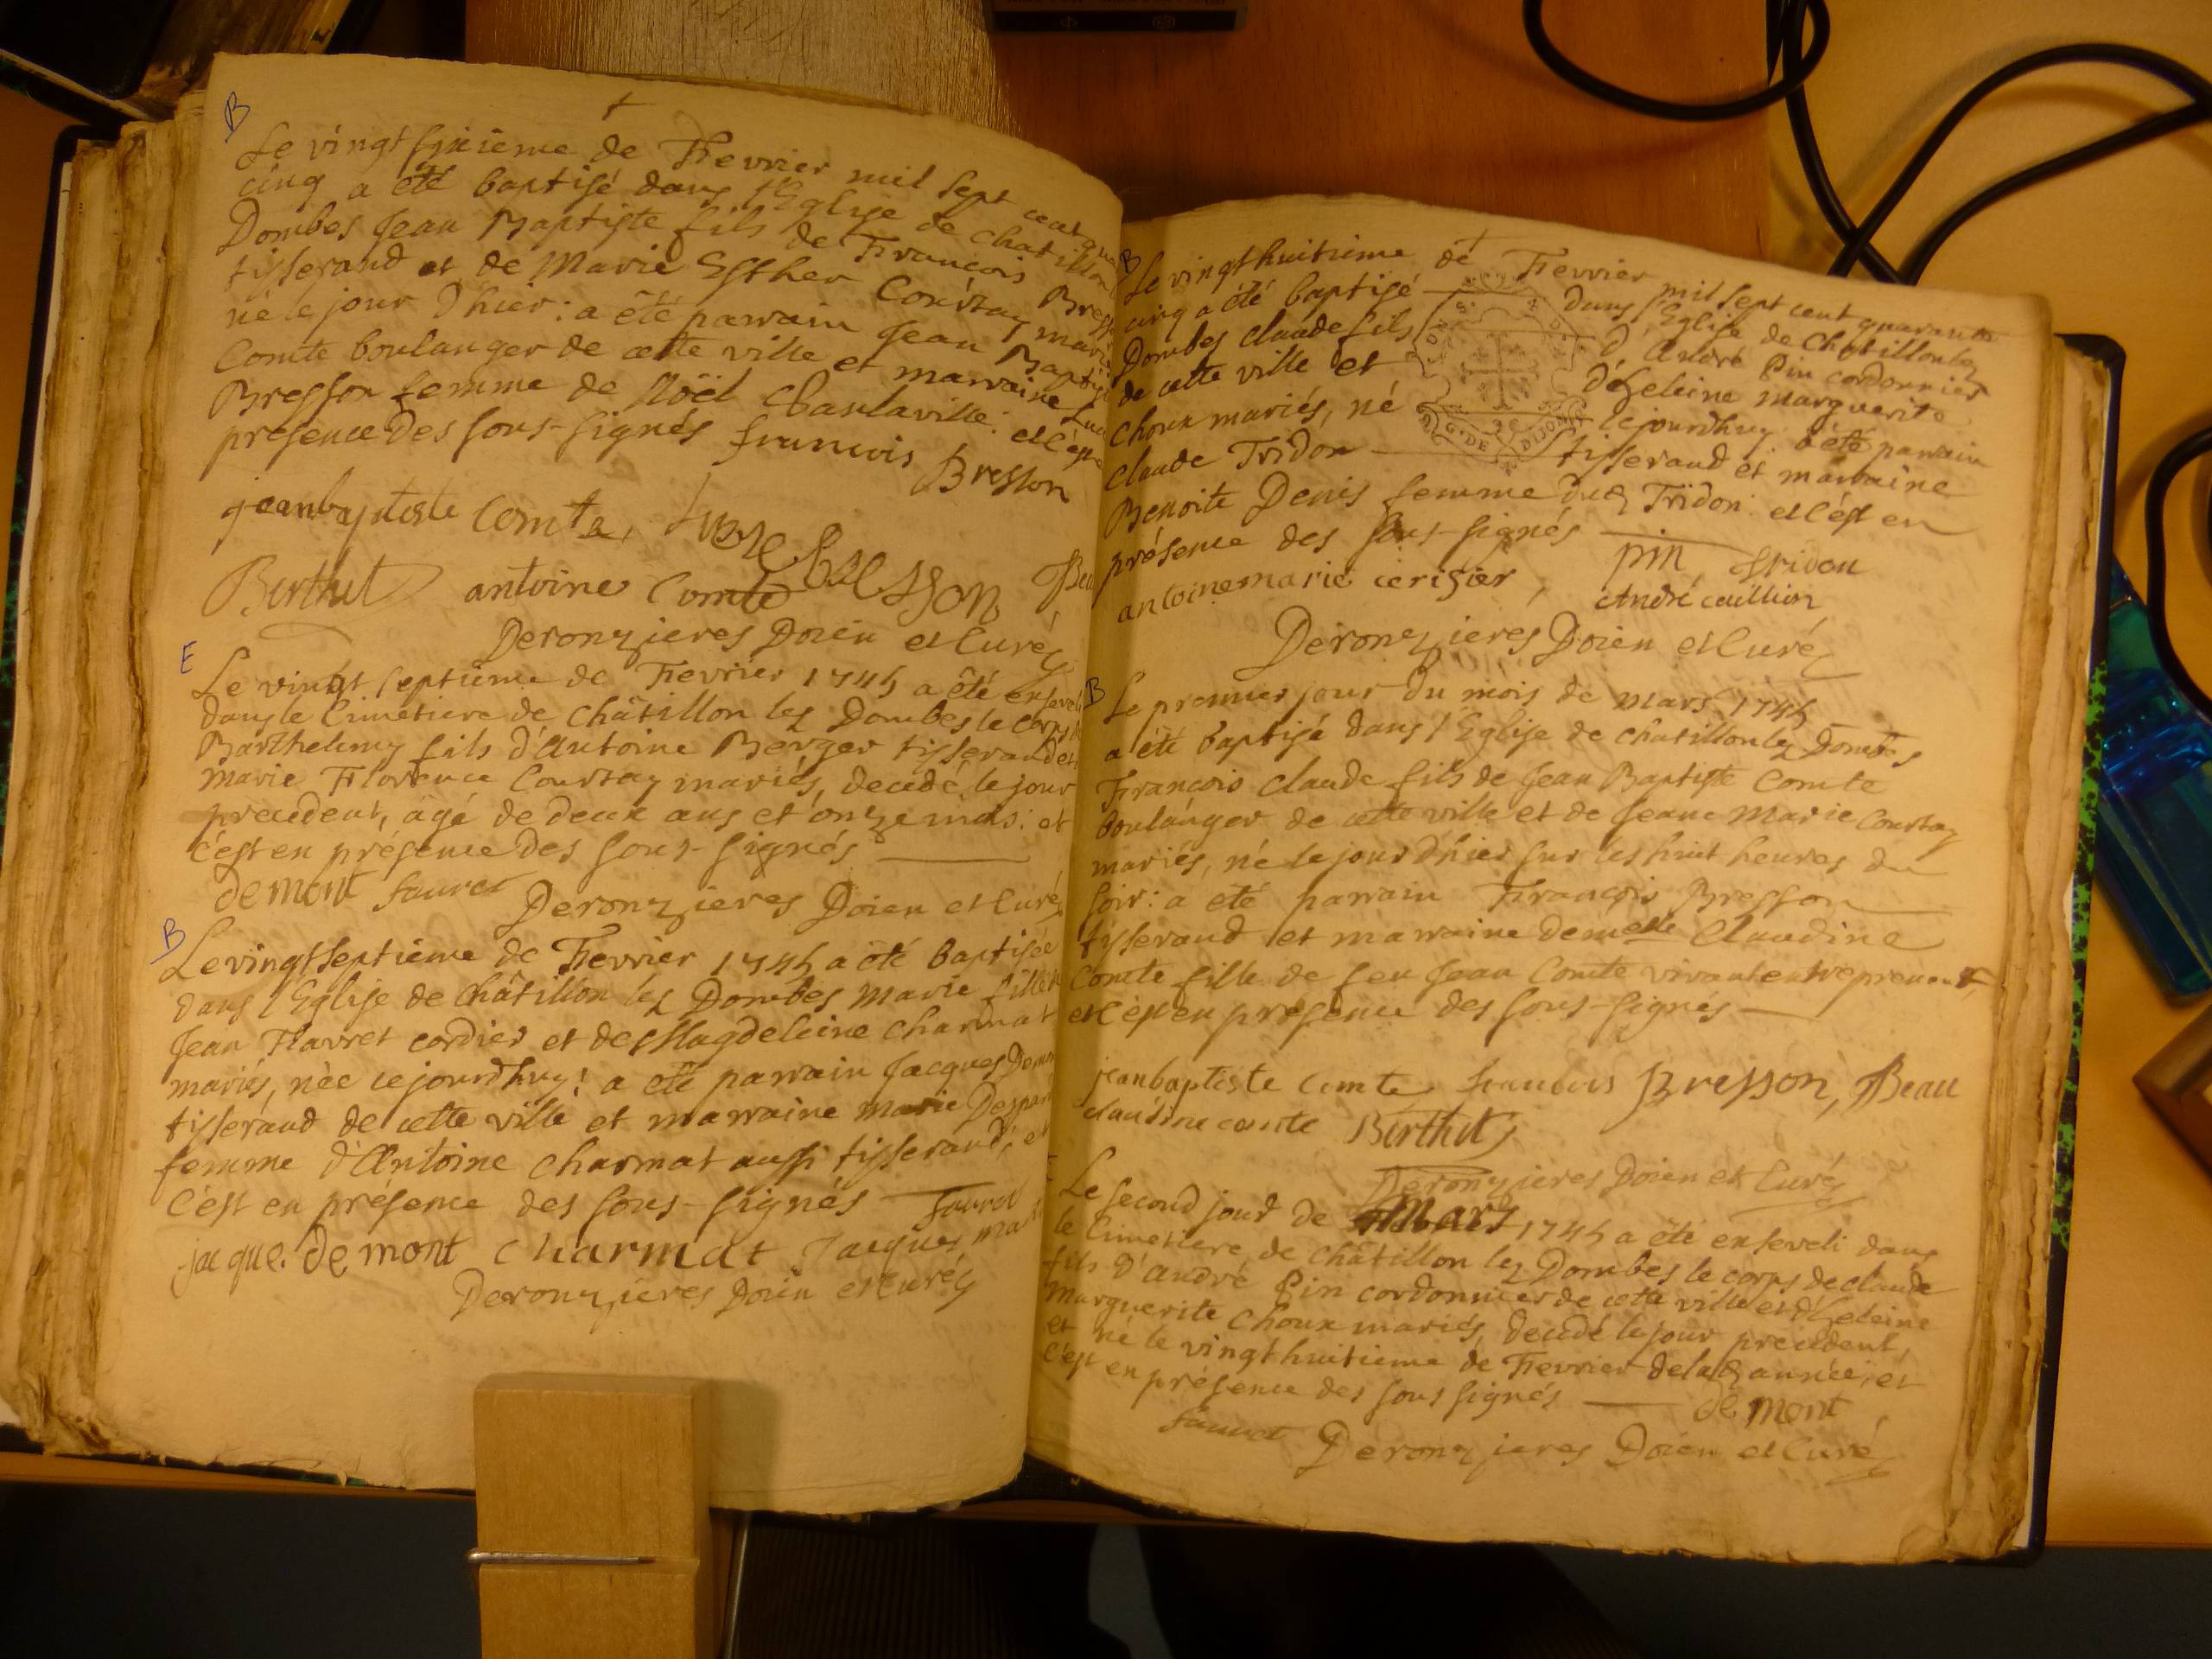 B
Le vingt sixième de Fevrier mil sept cent
cinq a été baptisé dans l'Eglise de Chatillon
Dombes Jean Baptiste fils de François
tisserand et de Marie Esther Courtay
né le jour d'hier: a été parrain Jean
Comte boulanger de cette ville et marraine
Bresson femme de Noël Chanlaville: et c'est
présence des sous-signés francois Bresson
jeanbaptiste Comte,
Berthet antoine Comte
Deronzieres Doien et Curé
E
Le vingt septieme de Fevrier 1745 a été enseveli
dans le Cimetiere de Châtillon lez Dombes le corps
Barthelemy fils d'Antoine Berger tisserand et
Marie Florence Courtay mariés, decedé le jour
precedent, âgé de deux ans et onze mois: et
c'est en présence des sous-signés
demont fauret Deronzieres Doien et Curé
B
Le vingt septième de Fevrier 1745 a été baptisée
dans l'Eglise de Châtillon lez Dombes Marie fille
Jean Flavret cordier et de Magdeleine Charmat
mariés, née cejourdhuy: a été parrain Jacques
tisserand de cette ville et marraine Marie
femme d'Antoine Charmat aussi tisserand; et
c'est en présence des sous-signés fauret
jacque. demont charmat Jacques
Deronzieres Doien et Curé
B
Le vingt huitième de Fevrier mil sept cent quarante
cinq a été baptisé dans l'Eglise de Châtillon lez
Dombes Claude fils d'André Pin cordonnier
de cette ville et d'Heleine Marguerite
Choux mariés, né le jourdhuy a été parrain
Claude Tridon tisserand et marraine
Benoite Denis femme dud Tridon: et c'est en
présence des sous-signés pin tridon
antoine marie cerisier, André
Deronzieres Doien et Curé
G. DE DIJON
B
Le premier jour du mois de Mars 1745
a été baptisé dans l'Eglise de chatillon lez Dombes
François Claude fils de Jean Baptiste Comte
boulanger de cette ville et de Jeane Marie Courtay
mariés, né le jour d'hier sur les huit heures du
soir: a été parrain François Bresson
tisserand et marraine demelle Claudine
Comte fille de feu Jean Comte vivant entrepreneur,
et c'est en présence des sous-signés
jeanbaptiste comte francois Bresson, Beau
claudine comte Berthet
Deronzieres Doien et Curé
Le second jour de Mars 1745 a été enseveli dans
le Cimetiere de Châtillon lez Dombes le corps de claude
fils d'andré Pin cordonnier de cette ville et d'Heleine
Marguerite Choux mariés, decedé le jour precedent,
et né le vingt huitieme de Fevrier de lad année; et
c'est en présence des sous signés demont
fauret Deronzieres Doien et Curé